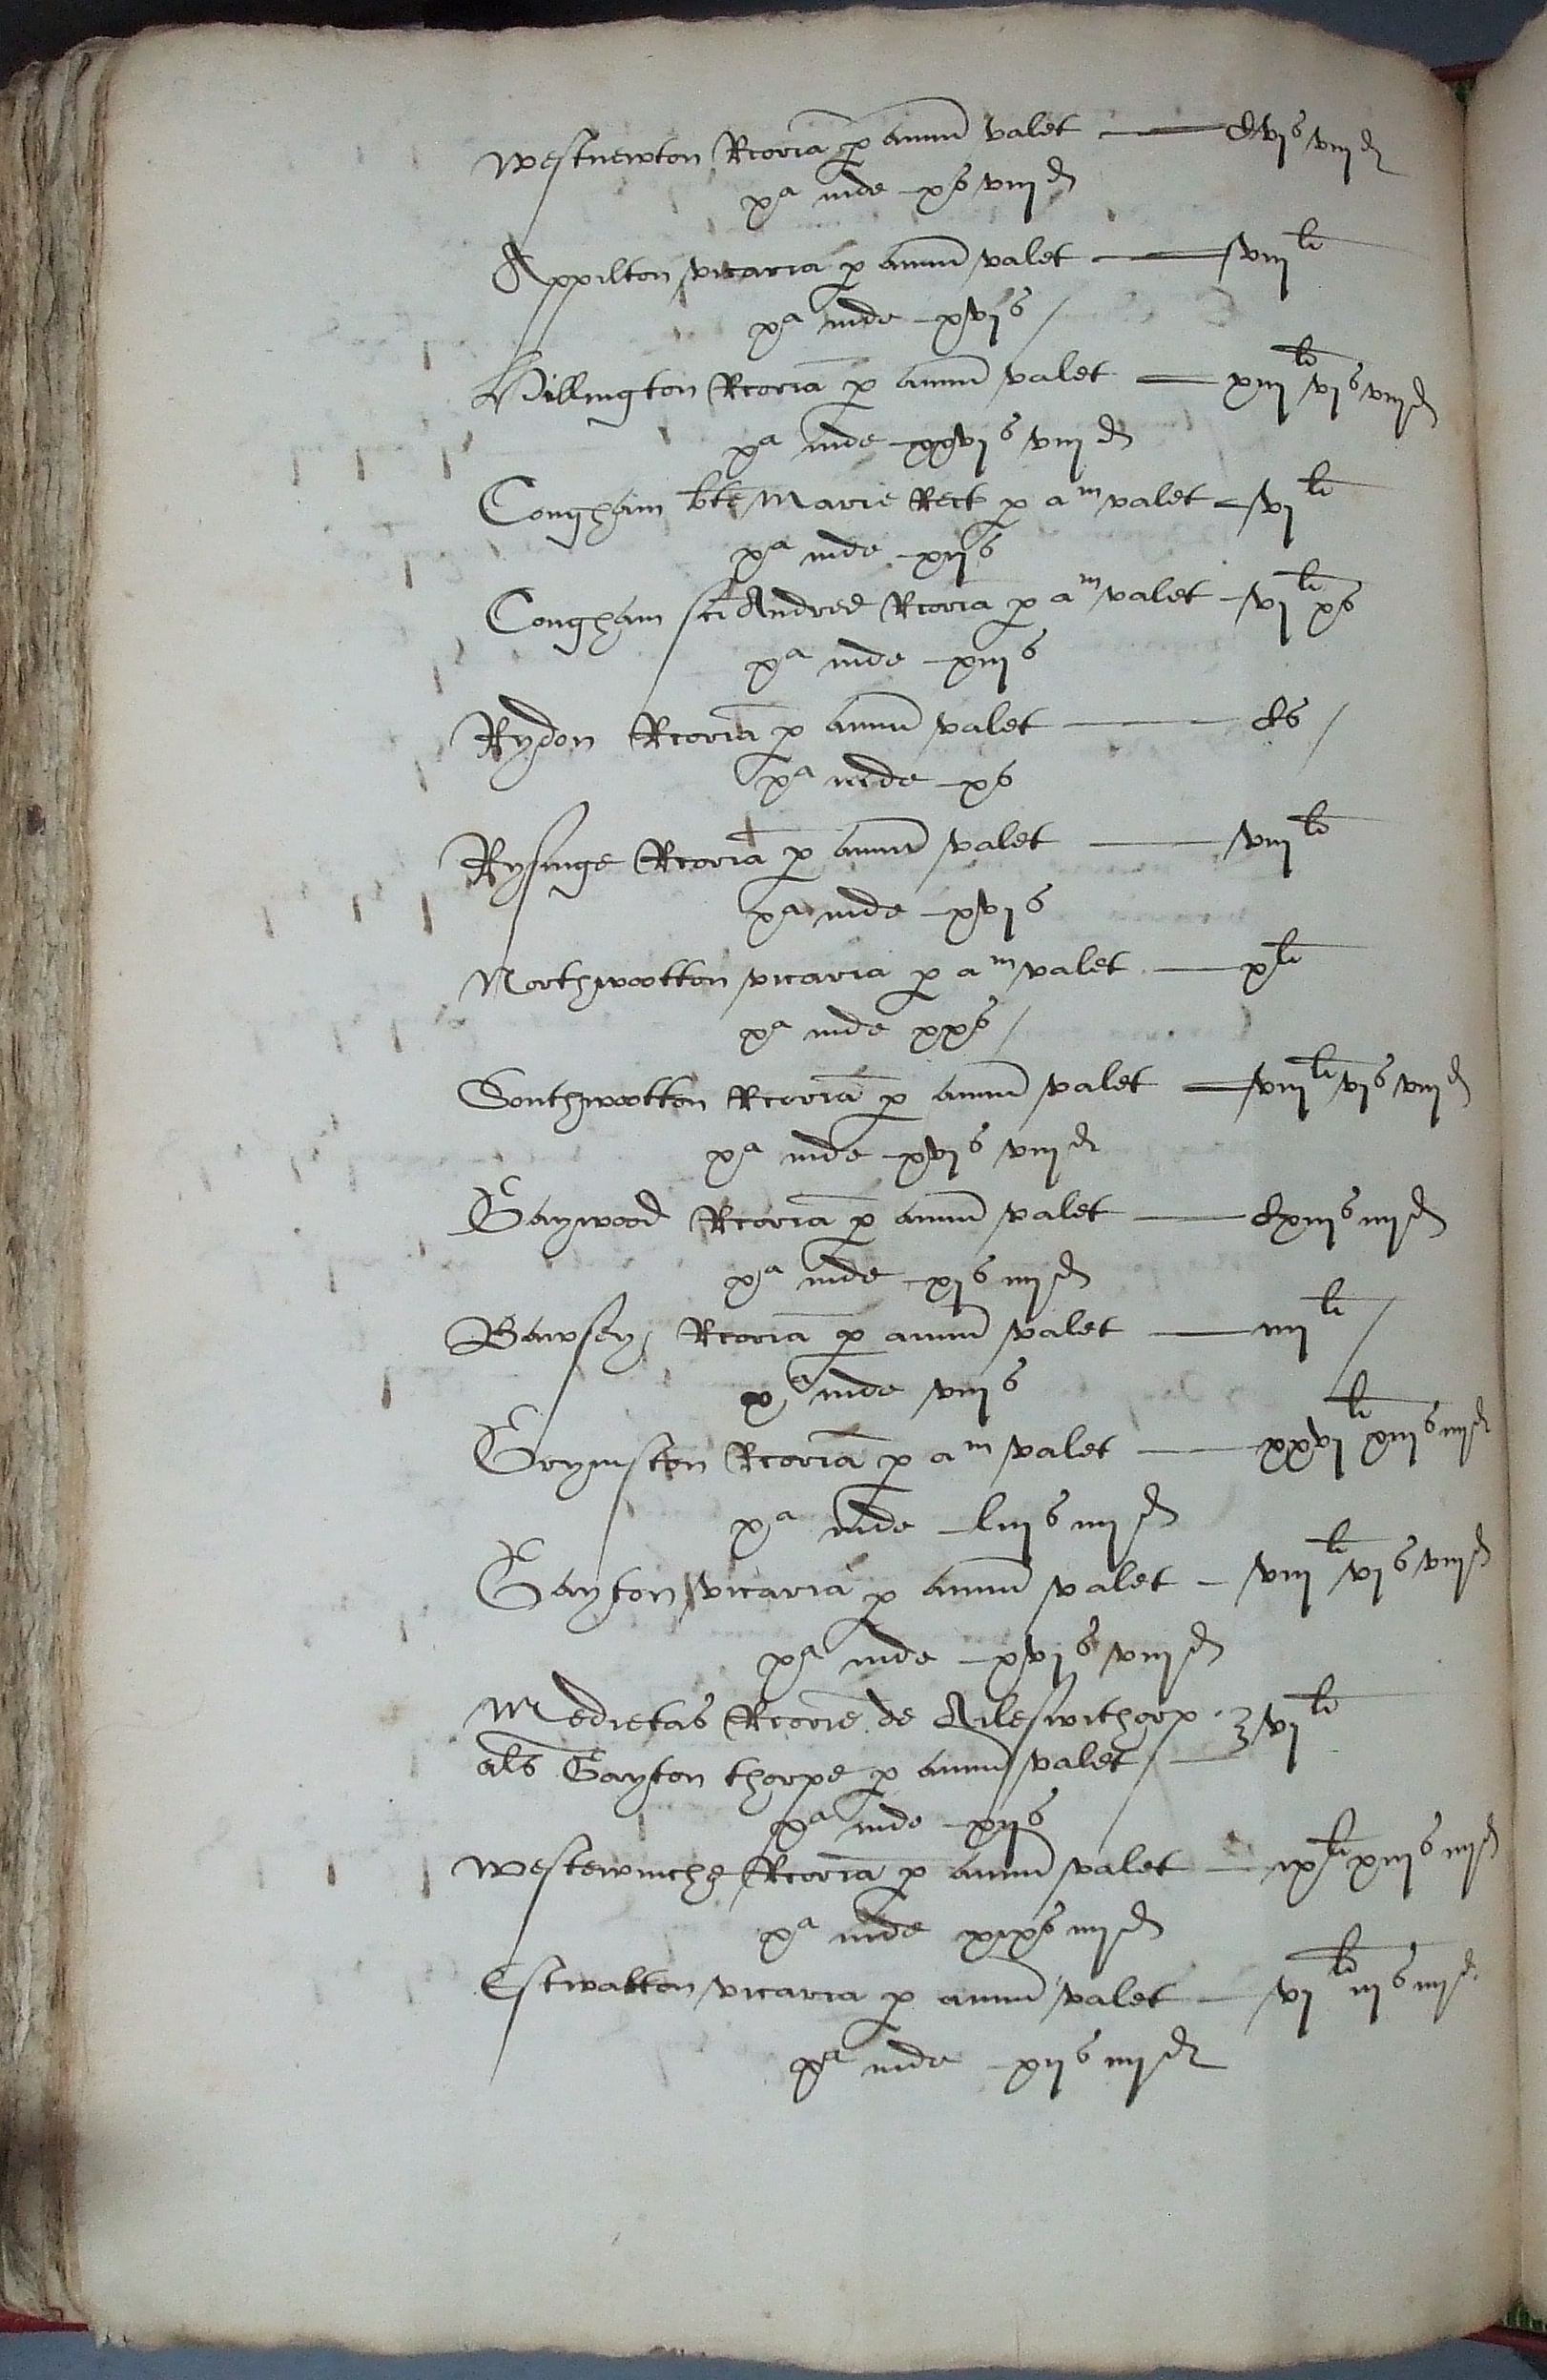 Westnewton Rcoria p annu valet — Cvjs viijd
xa inde xs viijd
Appilton vicaria p annu valet — viijli
xa inde xvjs /
Hillington Rcoria p annu valet — xiijli vjs viijd
xa inde xxvjs viijd
Congham bte Marie Rect p am valet – vjli
xa inde xijs
Congham sci Andree Rcoria p am valet – vjli xs
xa inde xiijs
Rydon Rcoria p annu valet — Cs /
xa inde xs
Rysinge Rcoria p annu valet — viijli
xa inde xvjs
Northwotton vicaria p am valet — xli
xa inde xxs /
Southwotton Rcoria p annu valet — viijli vjs viijd
xa inde xvjs viijd
Gaywood Rcoria p annu valet — Cxiijs iiijd
xa inde xjs iiijd
Bawsey Rcoria p annu valet — iiijli /
xa inde viijs
Grymston Rcoria p am valet — xxvjli xiijs iiijd
xa inde liijs iiijd
Gayton vicaria p annu valet – viijli vjs viijd
xa inde xvjs viijd
Medietas Rcorie de Aileswithorp
als Gayton thorpe p annu valet / — vjli
xa inde xijs
Westewinche Rcoria p annu valet — ixli xiijs iiijd
xa inde xixs iiijd
Estwalton vicaria p annu valet — vjli iijs iiijd
xa inde xijs iiijd